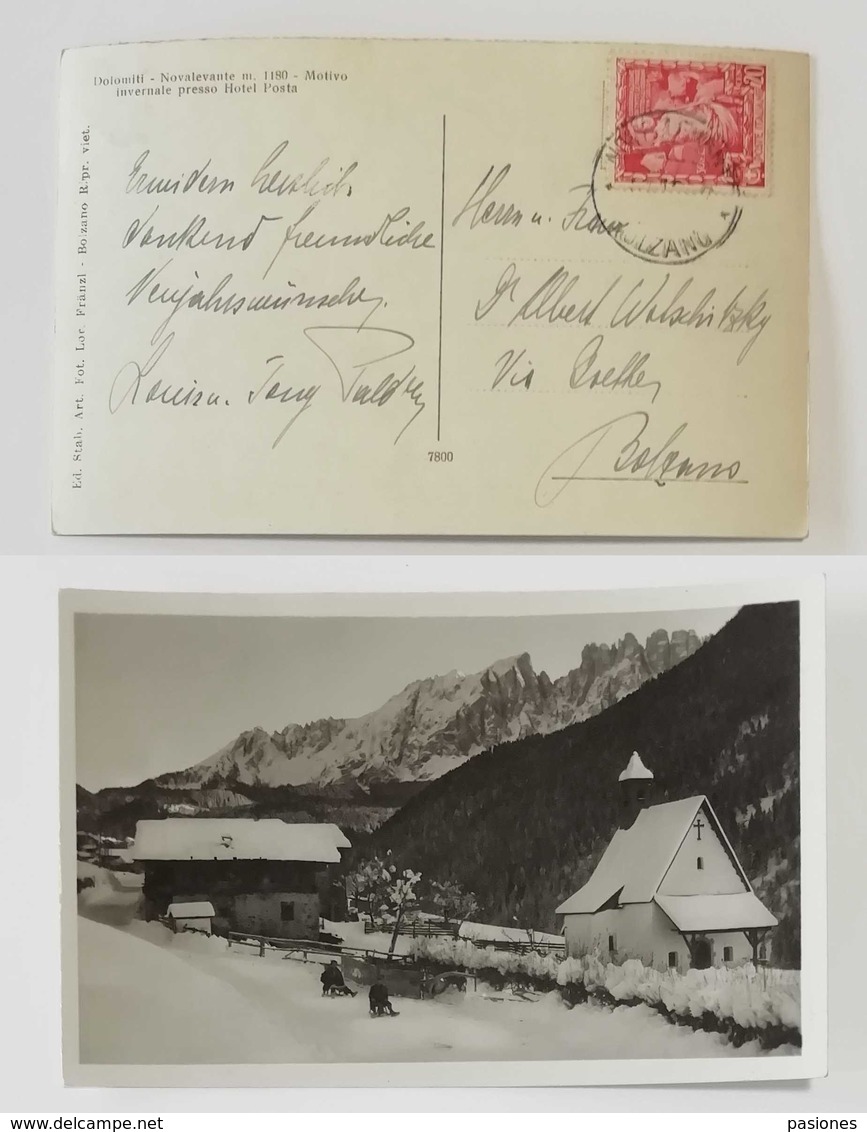 Dolomiti - Novalevante m. 1180 - Motivo
invernale presso Hotel Posta
Ed. Stab. Art. Fot. Lor. Fränzl - Bolzano R/pr. viet.
Erwidern herzlich,
dankend freundliche
Neujahrswünsche,
Louis u. Tony
7800
Herrn u. Frau
Dr Albert Walschitzky
Via Goethe,
Bolzano
BOLZANO
delcampe.net
pasiones